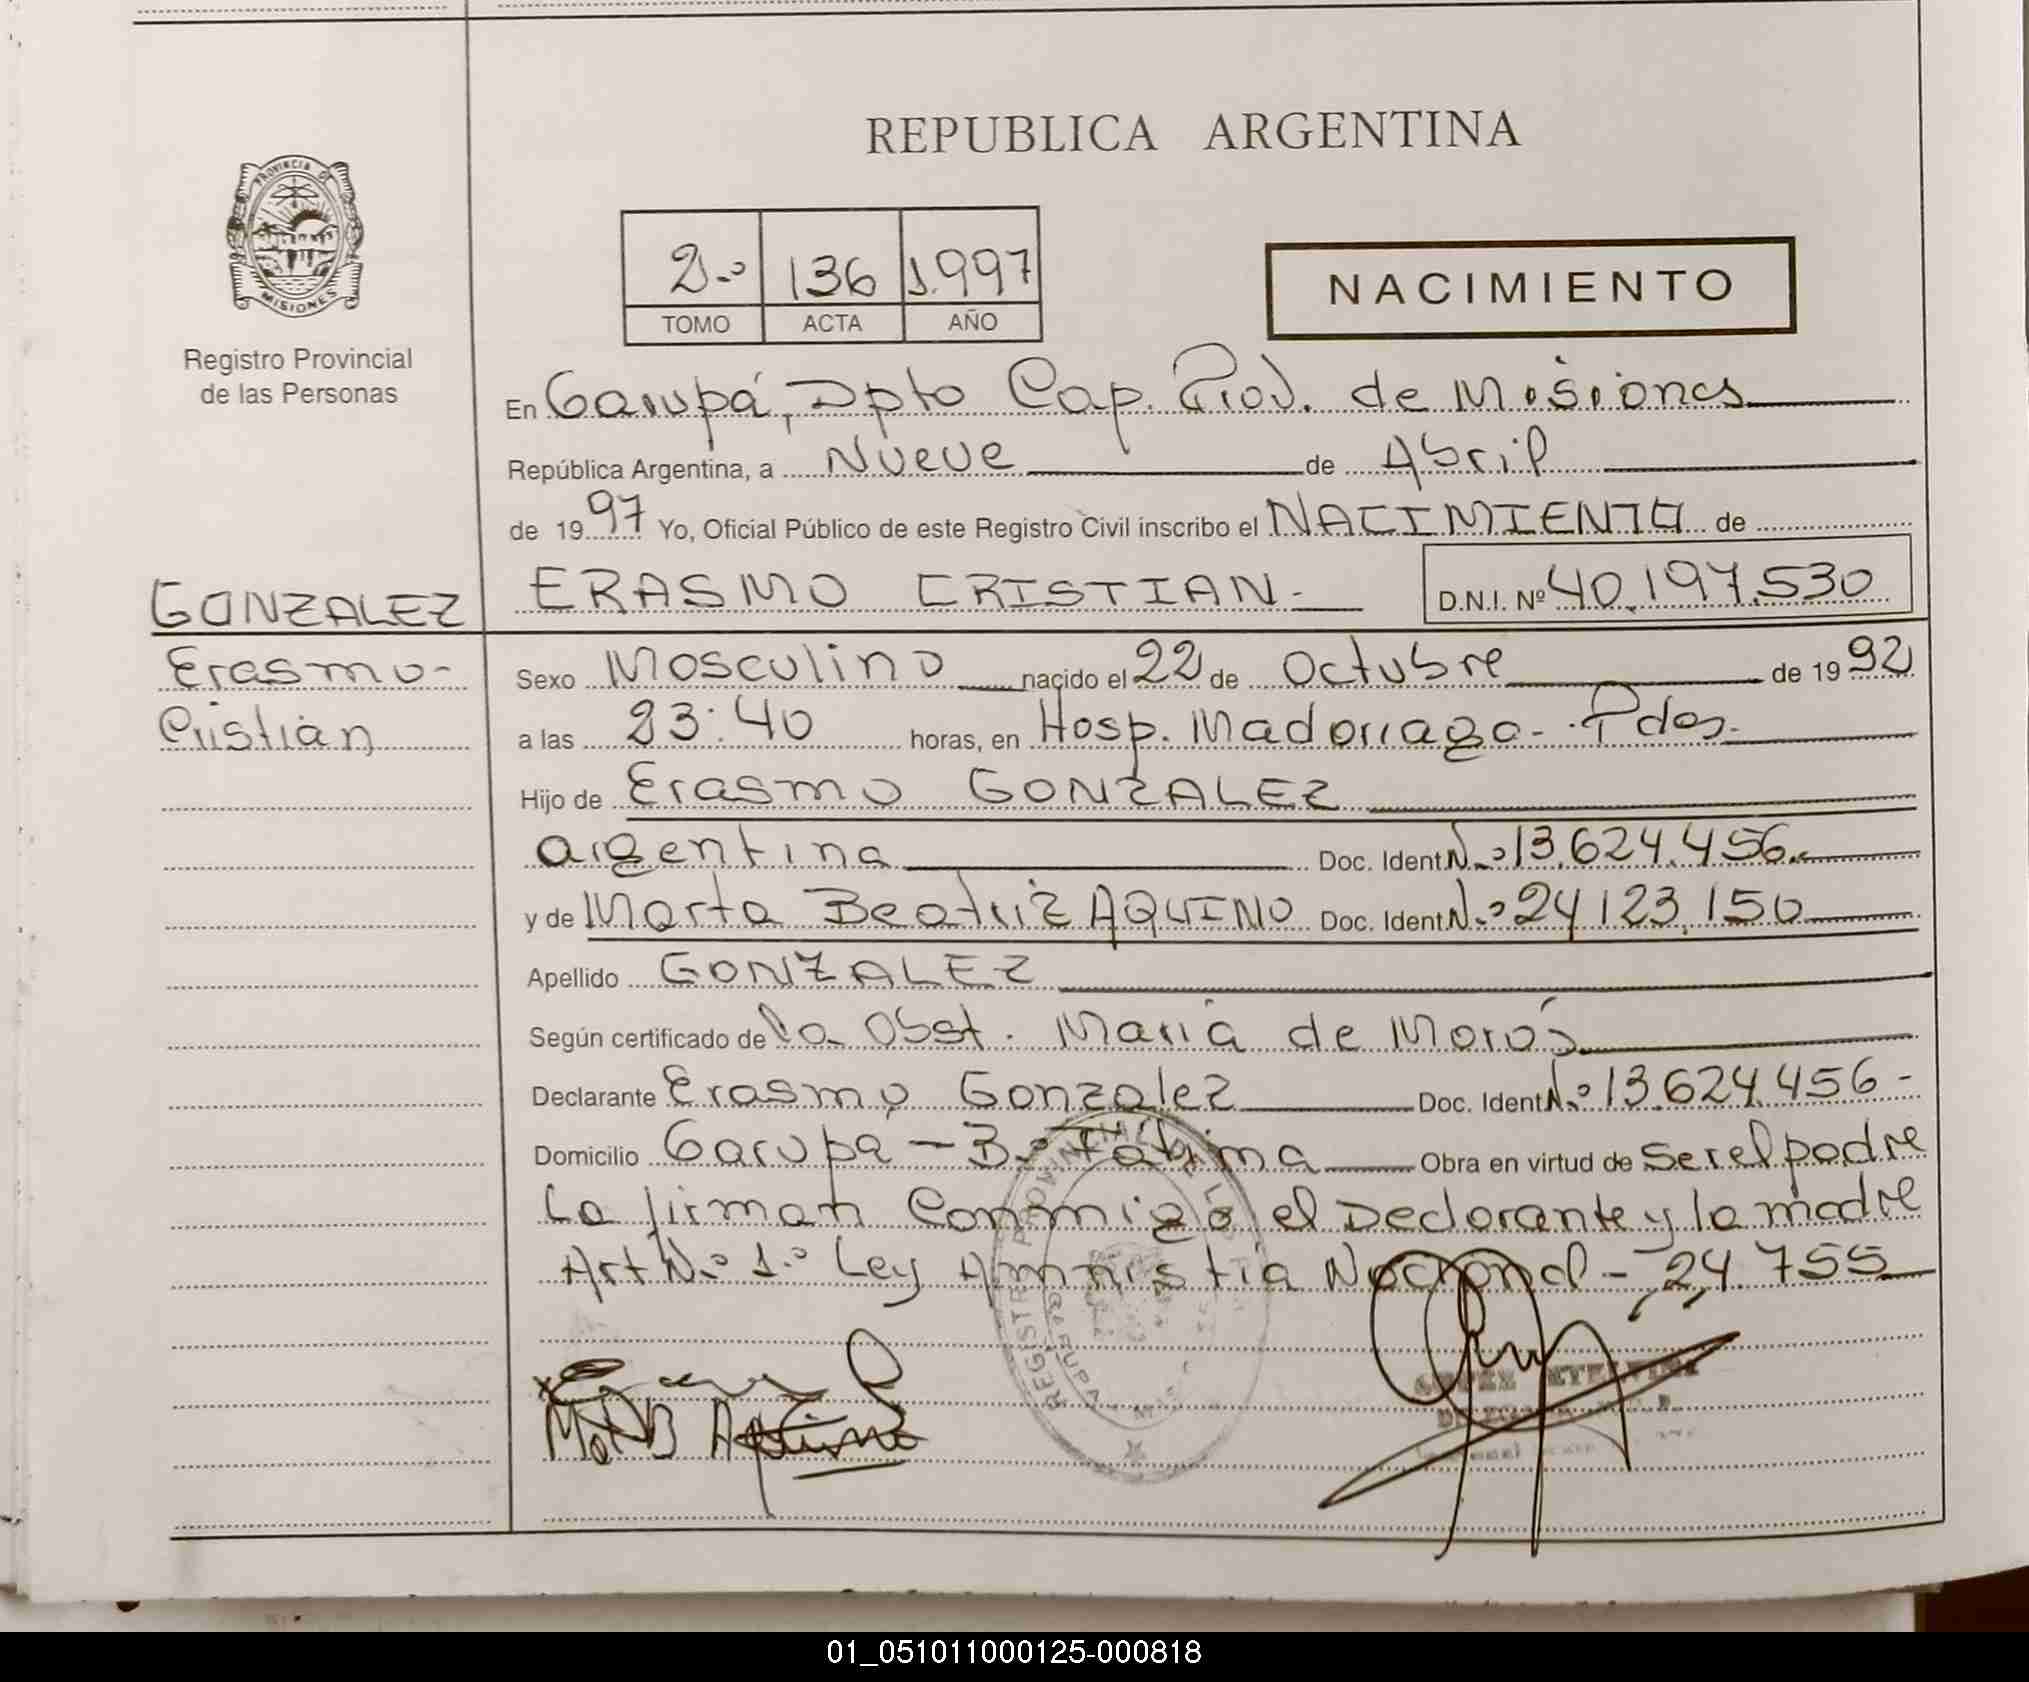 REPUBLICA ARGENTINA
PROVINCIA DE
MISIONES
Registro Provincial
de las Personas
2.º 136 1.997
TOMO ACTA AÑO
NACIMIENTO
En Garupá, Dpto Cap. Prov. de Misiones
República Argentina, a Nueve de Abril
de 1997 Yo, Oficial Público de este Registro Civil inscribo el NACIMIENTO de
GONZALEZ
Erasmo-
Cristian
ERASMO CRISTIAN.- D.N.I. Nº 40.197.530
Sexo Masculino nacido el 22 de Octubre de 1992
a las 23:40 horas, en Hosp. Madariaga-.Pdas.
Hijo de Erasmo GONZALEZ
argentina Doc. Ident. N.º 13.624.456.-
y de Marta Beatriz AQUINO Doc. Ident. N.º 24.123.150
Apellido GONZALEZ
Según certificado de la Obst. María de
Declarante Erasmo Gonzalez Doc. Ident. N.º 13.624.456-
Domicilio Garupá - B.º Fátima Obra en virtud de ser el padre
La firman Conmigo el Declarante y la madre
Art N.º 1.º Ley Amnistia Nacional - 24.755
REGISTRO PROVINCIAL DE LAS
GARUPA
Mar B Aquino
01_051011000125-000818